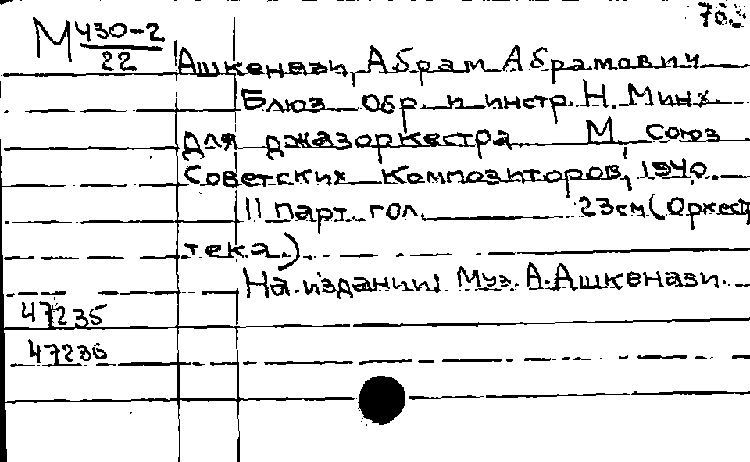 763
М 430-2
22
Ашкенази, Абрам Абрамович
Блюз Обр. и инстр. Н. Минх
для джазоркестра М., Союз
Советских Композиторов, 1940.
11 парт. гол. 23 см (Оркест
тека.)
На издании: Муз. А. Ашкенази.
47235
47236